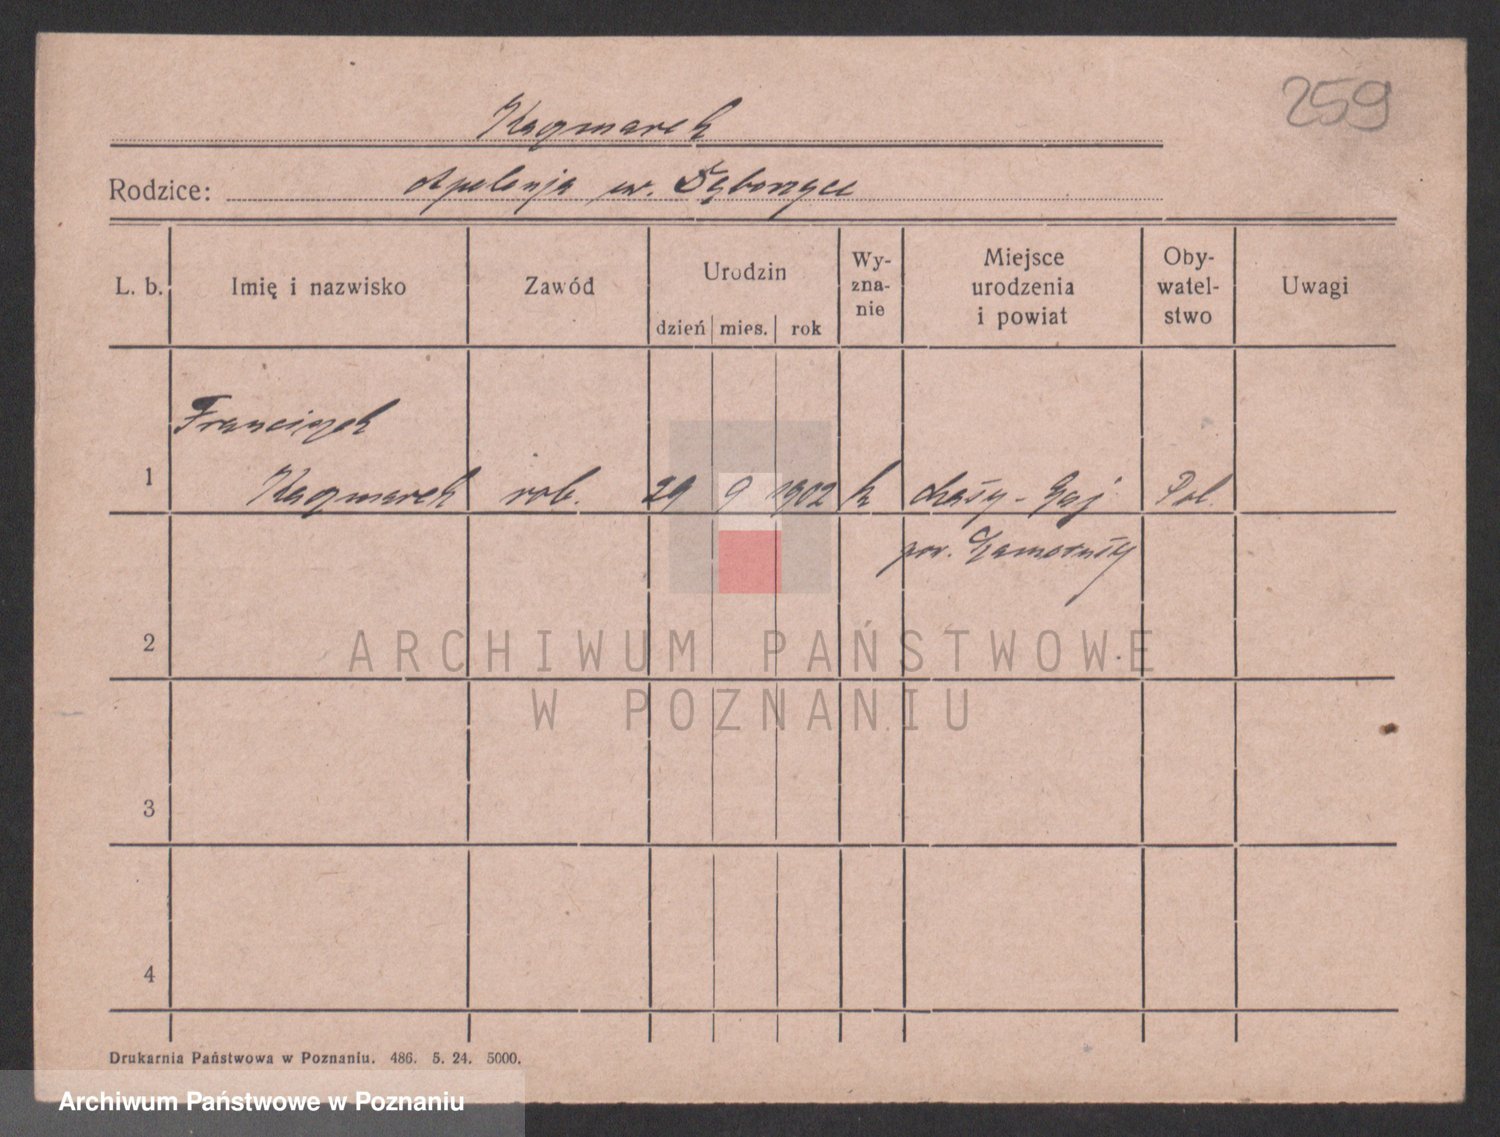 259
Kaczmarek
Rodzice: Apolonja ur. Dęboczycu
L. b. Imię i nazwisko Zawód Urodzin dzień mies. rok Wy-zna-nie Miejsce urodzenia i powiat Oby-watel-stwo Uwagi
Franciszek
1 Kaczmarek rob. 29 9 1902 k Mały-Gaj Pol.
pow. Szamotuły
2
ARCHIWUM PAŃSTWOWE
W POZNANIU
3
4
Drukarnia Państwowa w Poznaniu. 486. 5. 24. 5000.
Archiwum Państwowe w Poznaniu